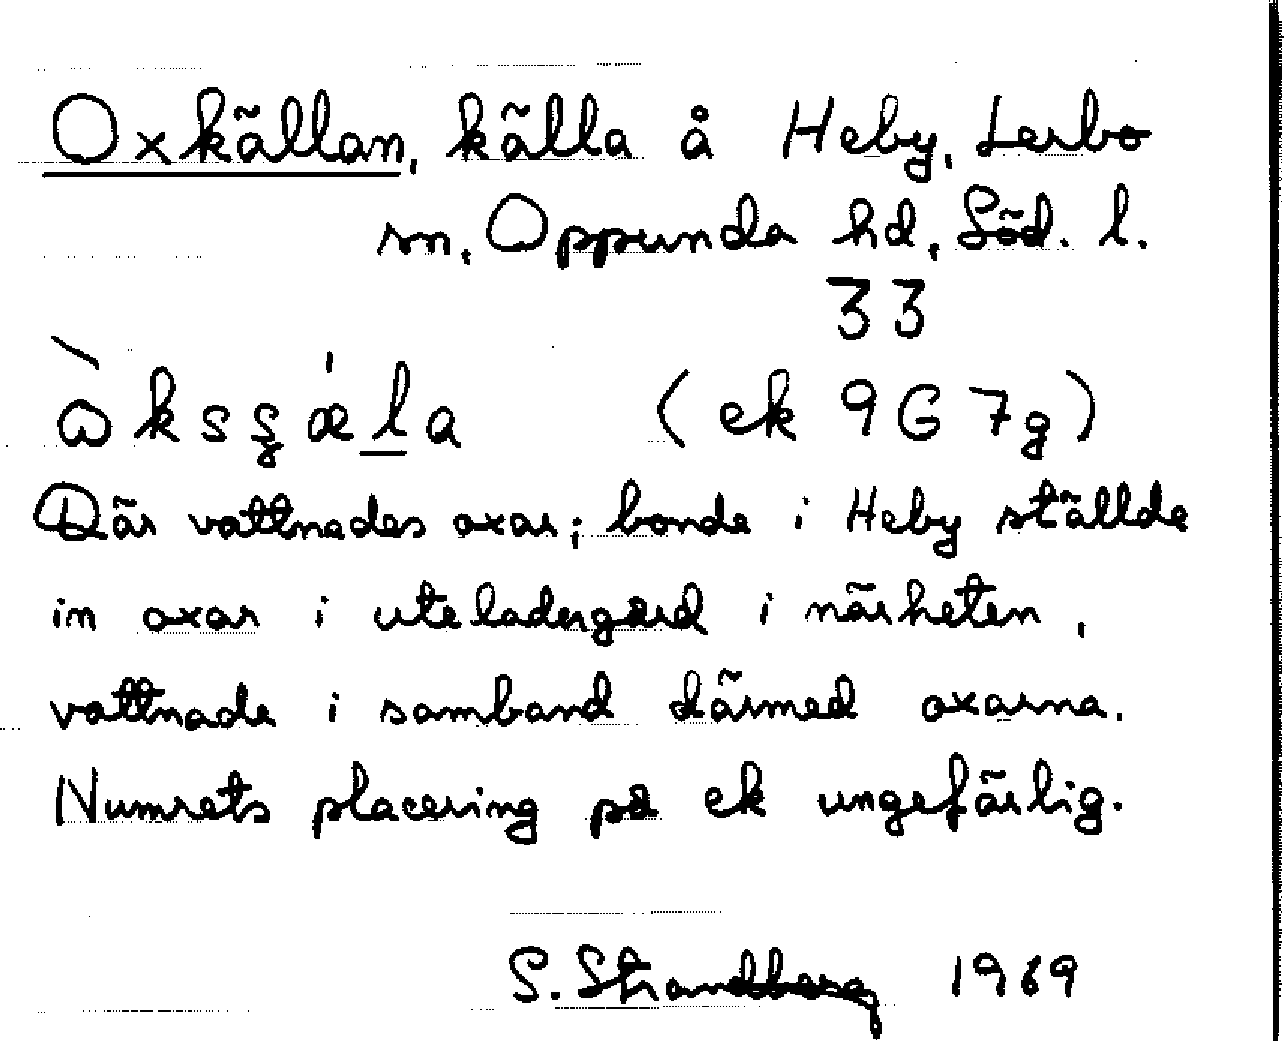 Oxkällan, källa å Heby, Lerbo
sn, Oppunda hd, Söd. l.
33
(ek 9G 7g)
Där vattnades oxar; bonde i Heby ställde
in oxar i uteladergård i närheten,
vattnade i samband därmed oxarna.
Numrets placering på ek ungefärlig.
S. Strandberg 1969